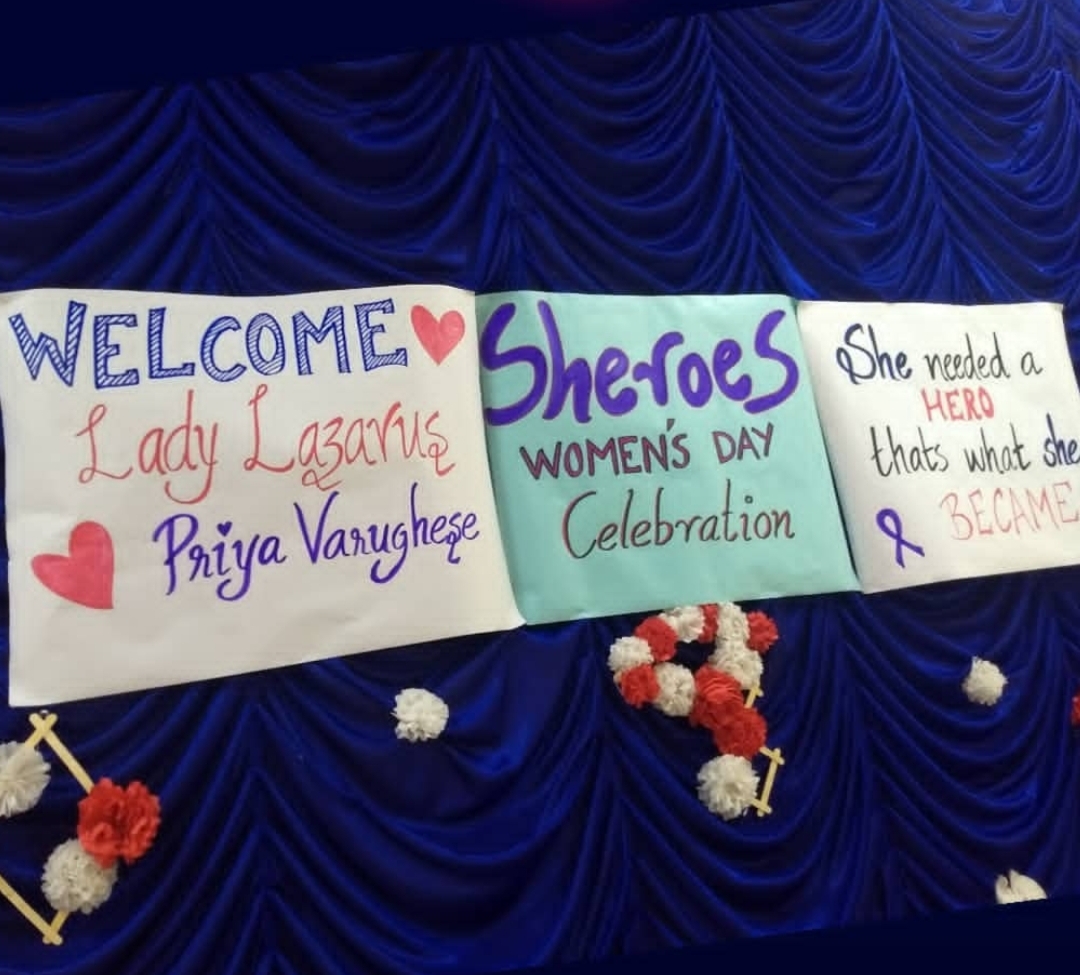 WELCOME
Lady Lazarus
Priya Varughese
Sheroes
WOMEN'S DAY
Celebration
She needed a
HERO
thats what she
BECAME